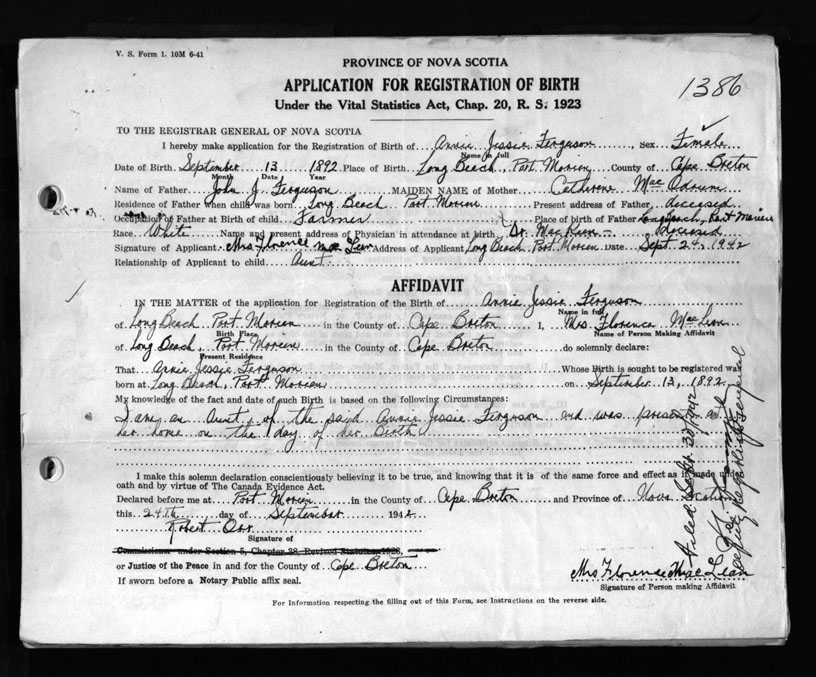 V. S. Form 1. 10M 6-41
PROVINCE OF NOVA SCOTIA
1386
APPLICATION FOR REGISTRATION OF BIRTH
Under the Vital Statistics Act, Chap. 20, R. S. 1923
TO THE REGISTRAR GENERAL OF NOVA SCOTIA
I hereby make application for the Registration of Birth of Annie Jessie Ferguson, Sex Female
Name in full
Date of Birth September 13 1892 Place of Birth Long Beach, Port Morien County of Cape Breton
Month Date Year
Name of Father John J. Ferguson MAIDEN NAME of Mother Catherine Mac
Residence of Father when child was born Long Beach Port Morien Present address of Father, deceased
Occupation of Father at Birth of child Farmer Place of birth of Father Long Beach, Port Morien
Race White Name and present address of Physician in attendance at birth Dr. Mac deceased
Signature of Applicant Mrs Florence Mac Lean Address of Applicant Long Beach Port Morien Date Sept. 24, 1942
Relationship of Applicant to child Aunt
AFFIDAVIT
IN THE MATTER of the application for Registration of the Birth of Annie Jessie Ferguson
Name in full
of Long Beach Port Morien in the County of Cape Breton I, Mrs. Florence MacLean
Birth Place Name of Person Making Affidavit
of Long Beach, Port Morien in the County of Cape Breton do solemnly declare:
Present Residence
That Annie Jessie Ferguson Whose Birth is sought to be registered was
born at Long Beach, Port Morien on September 13, 1892
My knowledge of the fact and date of such Birth is based on the following Circumstances:
I am an Aunt, of the said Annie Jessie Ferguson and was present at
her home on the day of her Birth
I make this solemn declaration conscientiously believing it to be true, and knowing that it is of the same force and effect as if made under
oath and by virtue of The Canada Evidence Act.
Declared before me at Port Morien in the County of Cape Breton and Province of Nova Scotia
this 24th day of September 1942
Robert Orr
Signature of
Commissioner under Section 5, Chapter 38, Revised Statutes 1923,
or Justice of the Peace in and for the County of Cape Breton
If sworn before a Notary Public affix seal.
Mrs Florence MacLean
Signature of Person making Affidavit
For Information respecting the filling out of this Form, see Instructions on the reverse side.
Filed Sept. 30, 1942
Deputy Registrar General